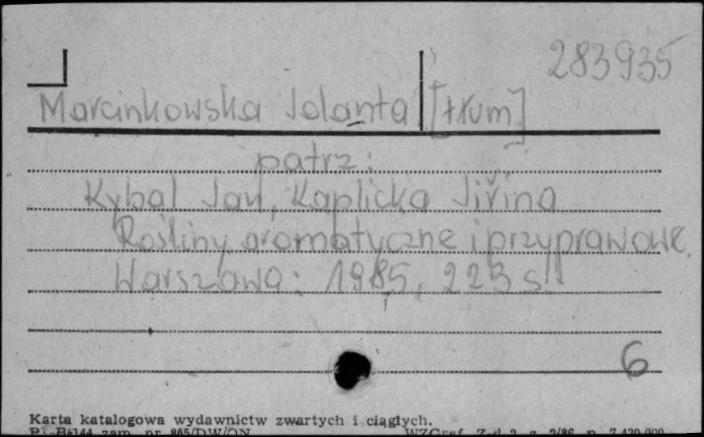 283935
Marcinkowska Jolanta [tłum]
patrz:
Kybal Jan, Kaplicka Jiřina
Rośliny aromatyczne i przyprawowe.
Warszawa: 1985, 223 s.
6
Karta katalogowa wydawnictw zwartych i ciągłych.
zam. nr 865/DW/ON